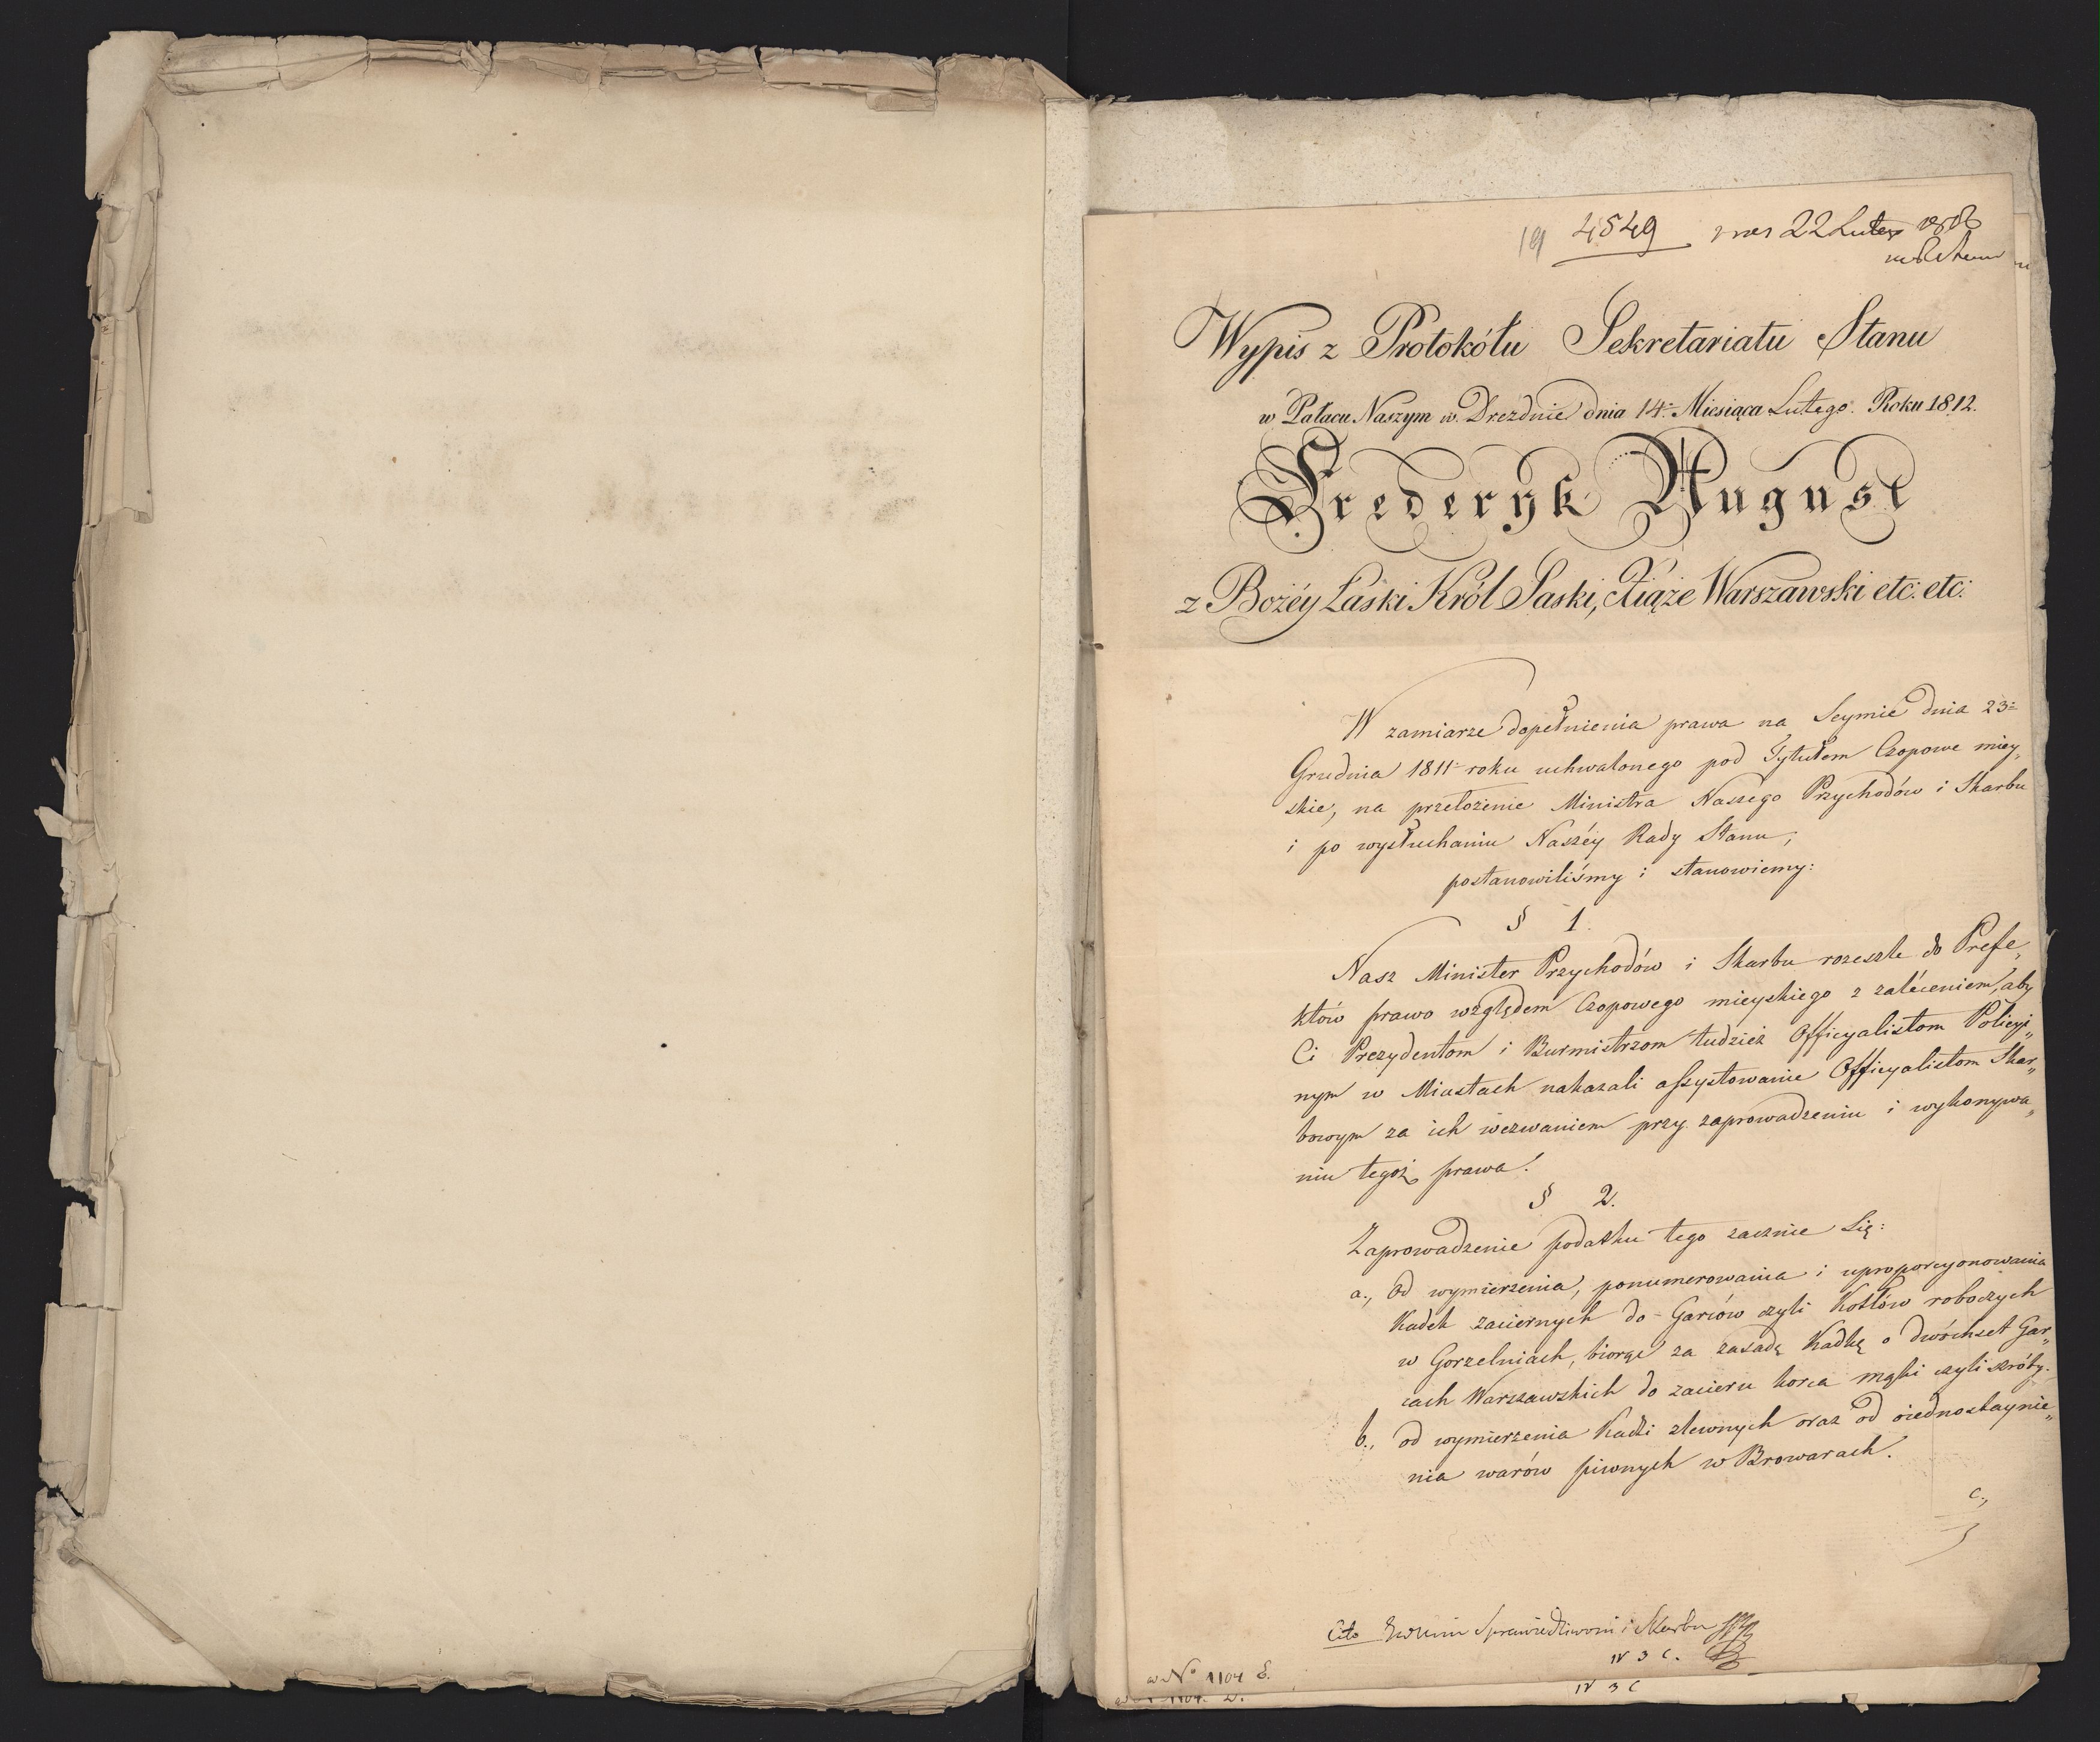 19 4549 22 Lutego
Wypis z Protokółu Sekretariatu Stanu
w Pałacu Naszym w Dreźnie dnia 14. Miesiąca Lutego. Roku 1812.
Frederyk August
z Bożéy Łaski Król Saski, Xiąże Warszawski etc: etc:
W zamiarze dopełnienia prawa na Seymie dnia 23=
Grudnia 1811= roku uchwalonego pod Tytułem Czopowe miey„
skie, na przełożenie Ministra Naszego Przychodów i Skarbu
i po wysłuchaniu Naszéy Rady Stanu,
postanowiliśmy i stanowiemy:
§ 1.
Nasz Minister Przychodów i Skarbu rozeszle do Prefe„
któw prawo względem Czopowego mieyskiego z zaleceniem, aby
Ci Prezydentom i Burmistrzom tudzież Officyalistom Policyi„
nym w Miastach nakazali assystowanie Officyalistom Skar„
bowym za ich wezwaniem przy zaprowadzeniu i wykonywa„
niu tegoż prawa.
§ 2.
Zaprowadzenie podatku tego zacznie się:
a., od wymierzenia, ponumerowania i uproporcyonowania
Kadek zaciernych do Garców czyli Kotłów roboczych
w Gorzelniach, biorąc za zasadę Kadkę o dwóchset Gar„
cach Warszawskich do zacieru korca mąki czyli szróty.
b., od wymierzenia Kadzi zlewnych oraz od ujednostaynie„
nia warów piwnych w Browarach.
c.,
Cito Sprawiedliwości i Skarbu
IV 3 C.
w No 1104 E.
IV 3 C